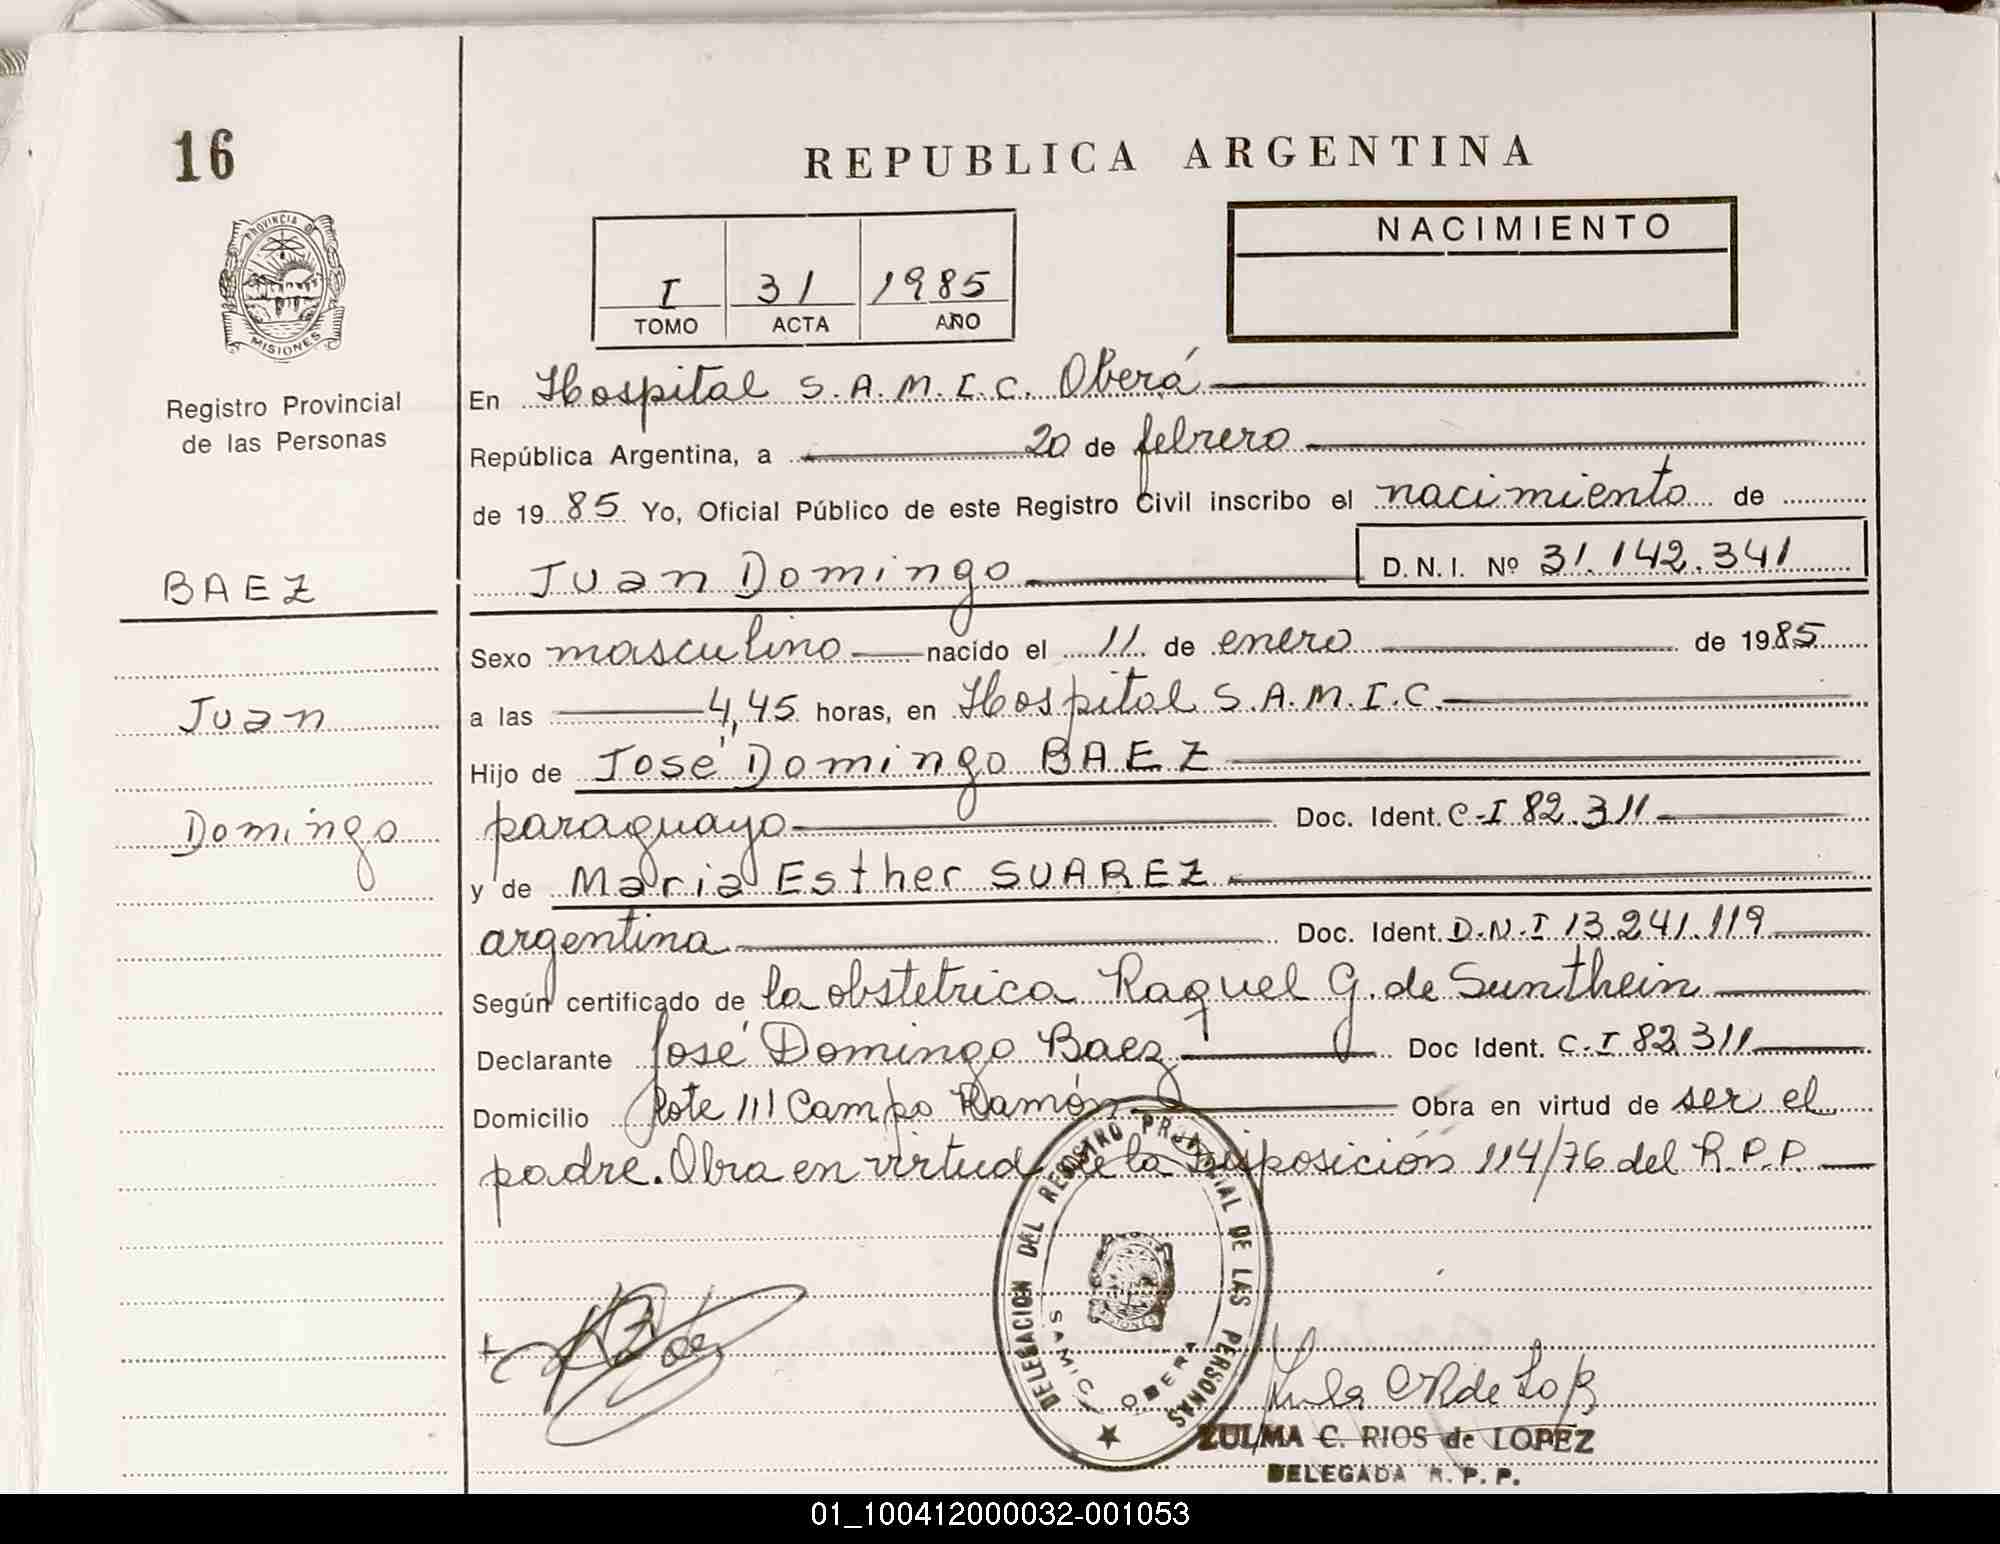 16
REPUBLICA ARGENTINA
PROVINCIA DE
MISIONES
NACIMIENTO
I 31 1985
TOMO ACTA AÑO
Registro Provincial
de las Personas
En Hospital S.A.M.I.C. Oberá
República Argentina, a 20 de febrero
de 1985 Yo, Oficial Público de este Registro Civil inscribo el nacimiento de
BAEZ
Juan Domingo D.N.I. Nº 31.142.341
Sexo masculino nacido el 11 de enero de 1985
Juan
a las 4,45 horas, en Hospital S.A.M.I.C.
Hijo de José Domingo BAEZ
Domingo
paraguayo Doc. Ident. C-I 82.311
y de Maria Esther SUAREZ
argentina Doc. Ident. D.N.I 13.241.119
Según certificado de la obstetrica Raquel G. de Sunthein
Declarante José Domingo Baez Doc Ident. C-I 82.311
Domicilio Lote 111 Campo Ramón Obra en virtud de ser el
padre. Obra en virtud de la disposición 114/76 del R.P.P.
DELEGACION DEL REGISTRO PROVINCIAL DE LAS PERSONAS
SAMIC OBERA
MISIONES
ZULMA C. RIOS de LOPEZ
DELEGADA R.P.P.
01_100412000032-001053